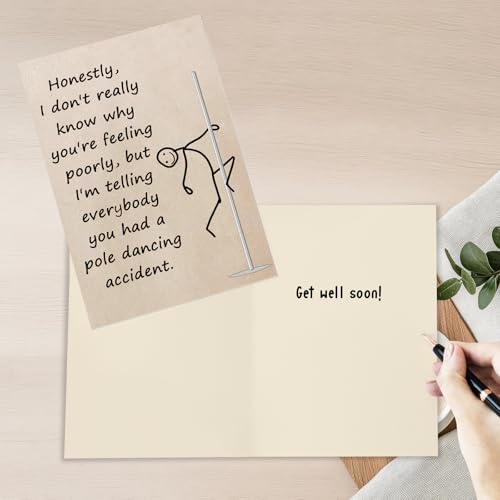 Honestly,
I don't really
know why
you're feeling
poorly, but
I'm telling
everybody
you had a
pole dancing
accident.
Get well soon!